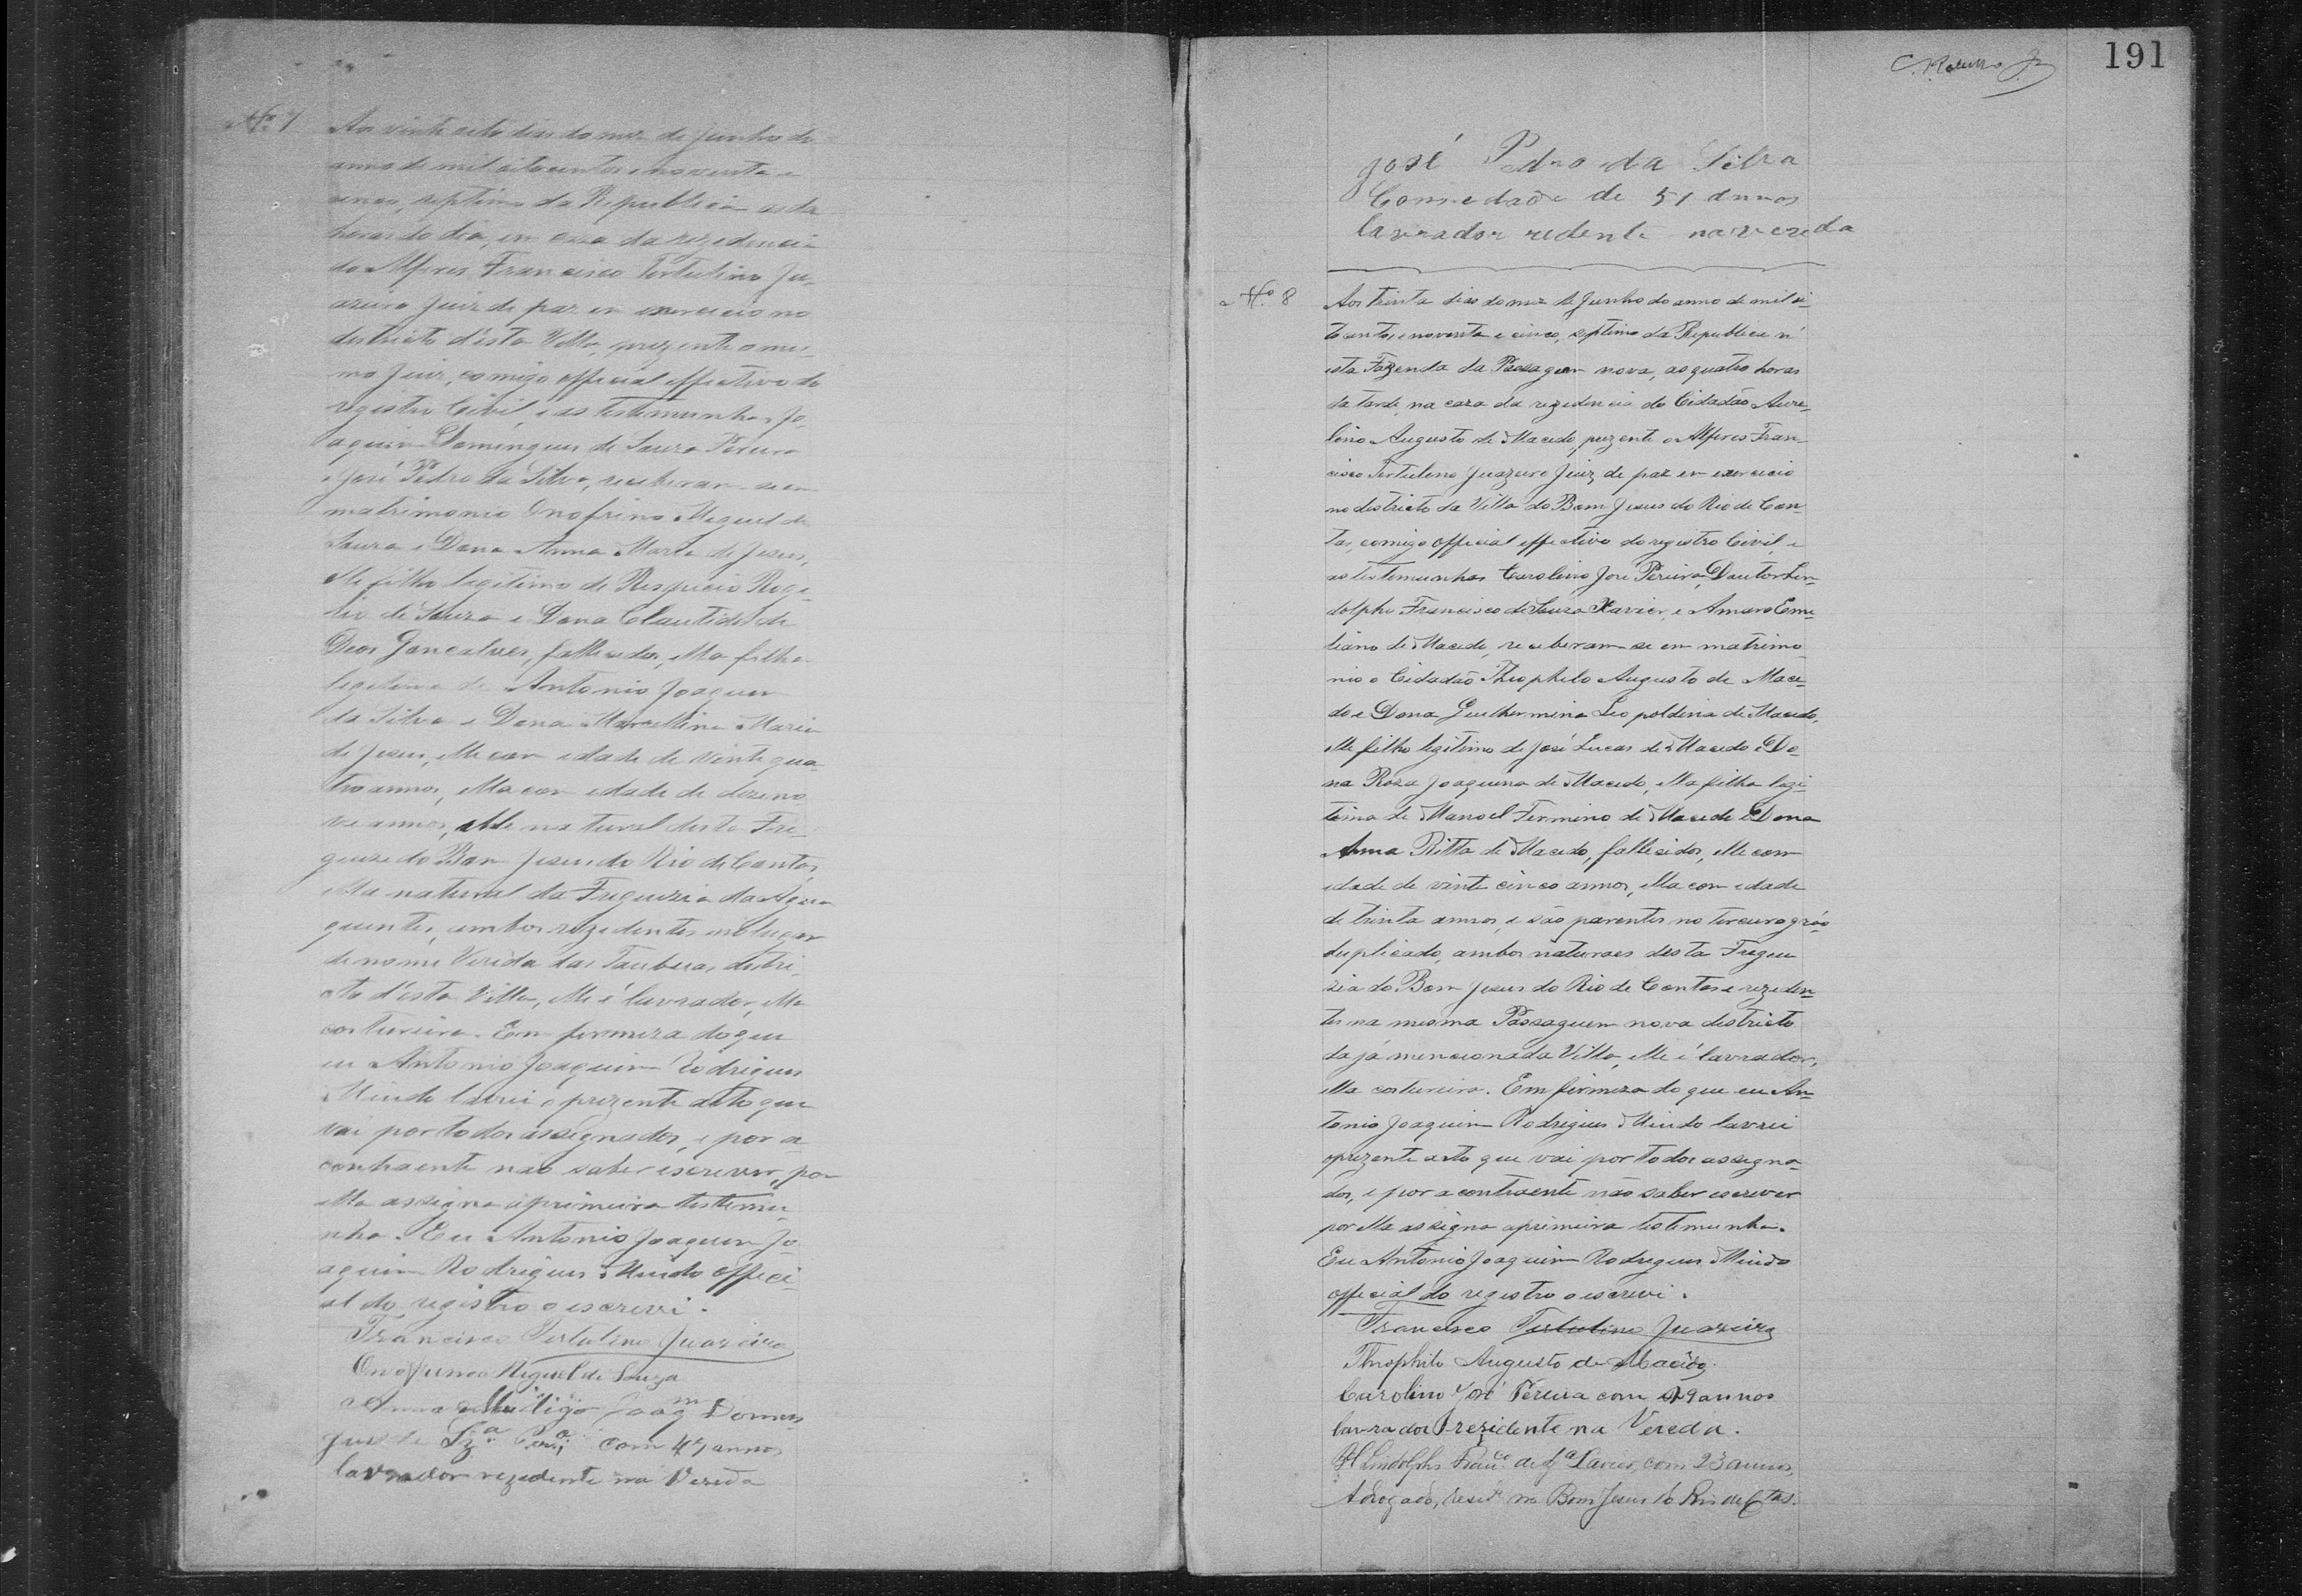 Nº 7 Aos vinte oito dias do mez de Junho do
anno de mil oitocentos e noventa e
cinco, septimo da Republica as da
horas do dia, em caza da rezidencia
do Alferes Francisco Tertulino Ju-
azeiro Juiz de paz em exercicio no
districto d'esta Villa, prezente o mes-
mo Juiz, comigo official effectivo do
registro Civil, e as testemunhas Jo-
aquim Domingues de Souza Pereira
e José Pedro da Silva, receberam-se em
matrimonio Onofrino Miguel de
Souza e Dona Anna Maria de Jesus,
elle filho legitimo de Respicio Roge-
rio de Souza e Dona Clautides de
Deos Gonçalves, fallecidos, ella filha
legitima de Antonio Joaquim
da Silva e Dona Marcellina Maria
de Jesus, elle com edade de vinte qua-
tro annos, ella com edade de dezeno-
ve annos, elle natural desta Fre-
guezia do Bom Jesus do Rio de Contas,
ella natural da Freguezia da Agua
quente, ambos rezidentes no lugar
de nome Vereda das Taubuas, distri-
cto d'esta Villa, elle é lavrador, ella
costureira. Em firmeza do que
eu Antonio Joaquim Rodrigues
Mindo lavrei o prezente acto que
vai por todos assignados, e por a
contraente não saber escrever, por
ella assigna a primeira testemu-
nha. Eu Antonio Joaquim Jo-
aquim Rodrigues Mindo offici-
al do registro o escrevi.
Francisco Tertulino Juazeiro
Onofrino Miguel de Souza
Anna Joaqm Domin
gues de Sza Pera com 47 annos
lavrador rezidente na Vereda
191
José Pedro da Silva
Com edade de 51 annos
lavrador redente na vereda
Nº 8 Aos trinta dias do mez de Junho do anno de mil oi-
tocentos e noventa e cinco, septimo da Republica n'
esta Fazenda da Passagem nova, as quatro horas
da tarde, na caza da rezidencia do Cidadão Aure-
lino Augusto de Macedo, prezente o Alferes Fran-
cisco Tertulino Juazeiro Juiz de paz em exercicio
no districto da Villa do Bom Jesus do Rio de Con-
tas, comigo official effectivo do registro Civil, e
as testemunhas Carolino José Pereira, Doutor Lin-
dolpho Francisco de Souza Xavier, e Amaro Emi-
liano de Macedo, receberam-se em matrimo-
nio o Cidadão Theophilo Augusto de Mace-
do e Dona Guilhermina Leopoldina de Macedo,
elle filho legitimo de José Lucas de Macedo e Do-
na Roza Joaquina de Macedo, ella filha legi-
tima de Manoel Firmino de Macedo e Dona
Anna Ritta de Macedo, fallecidos, elle com
edade de vinte cinco annos, ella com edade
de trinta annos, e são parentes no terceiro gráo
duplicado, ambos naturaes desta Fregue-
zia do Bom Jesus do Rio de Contas e reziden-
tes na mesma Passaguem nova districto
da já mencionada Villa, elle é lavrador,
ella costureira. Em firmeza do que eu An-
tonio Joaquim Rodrigues Mindo lavrei
o prezente acto que vai por todos assigna-
dos, e por a contraente não saber escrever
por ella assigna a primeira testemunha.
Eu Antonio Joaquim Rodrigues Mindo
official do registro o escrevi.
Francisco Tertulino Juazeiro
Theophilo Augusto de Macedo.
Carolino José Pereira com 29 annos
lavrador rezidente na Vereda.
Lindolpho Franco de Sza Xavier, com 23 annos,
Advogado, resid. no Bom Jesus do Rio de Ctas.